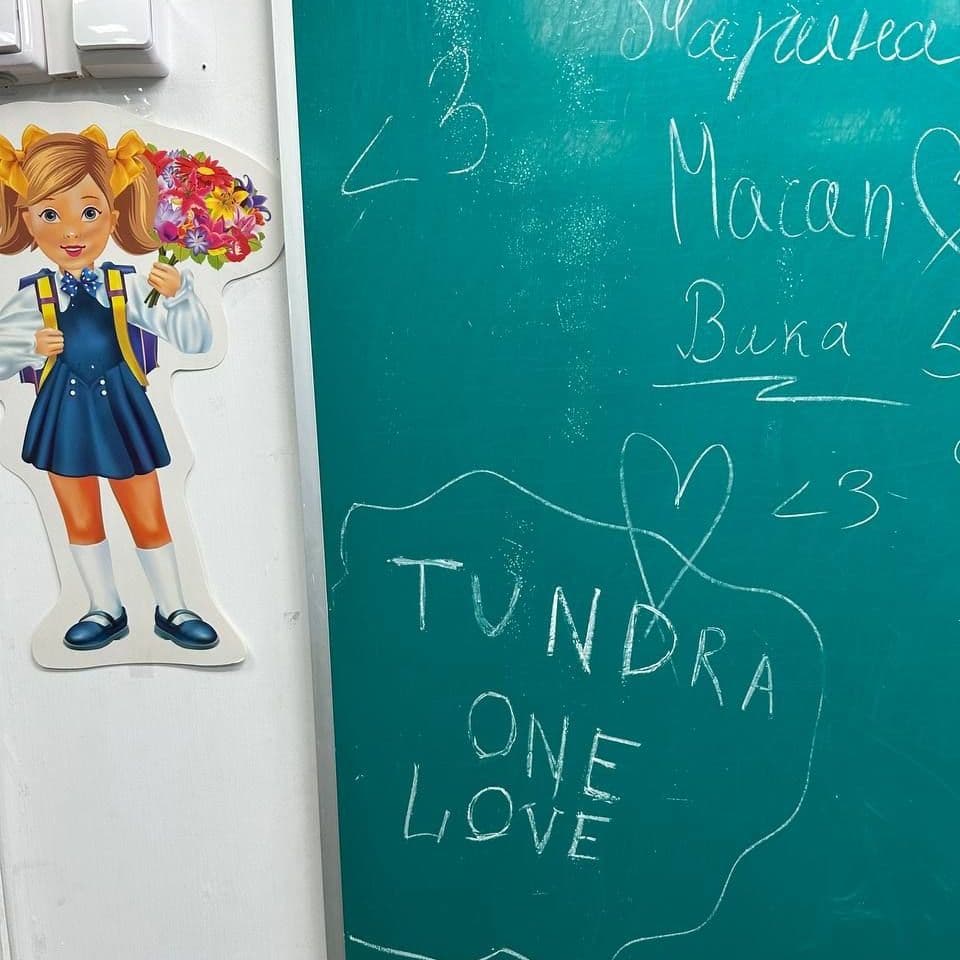 Марина
<3
Macan
Вика
<3
TUNDRA
ONE
LOVE